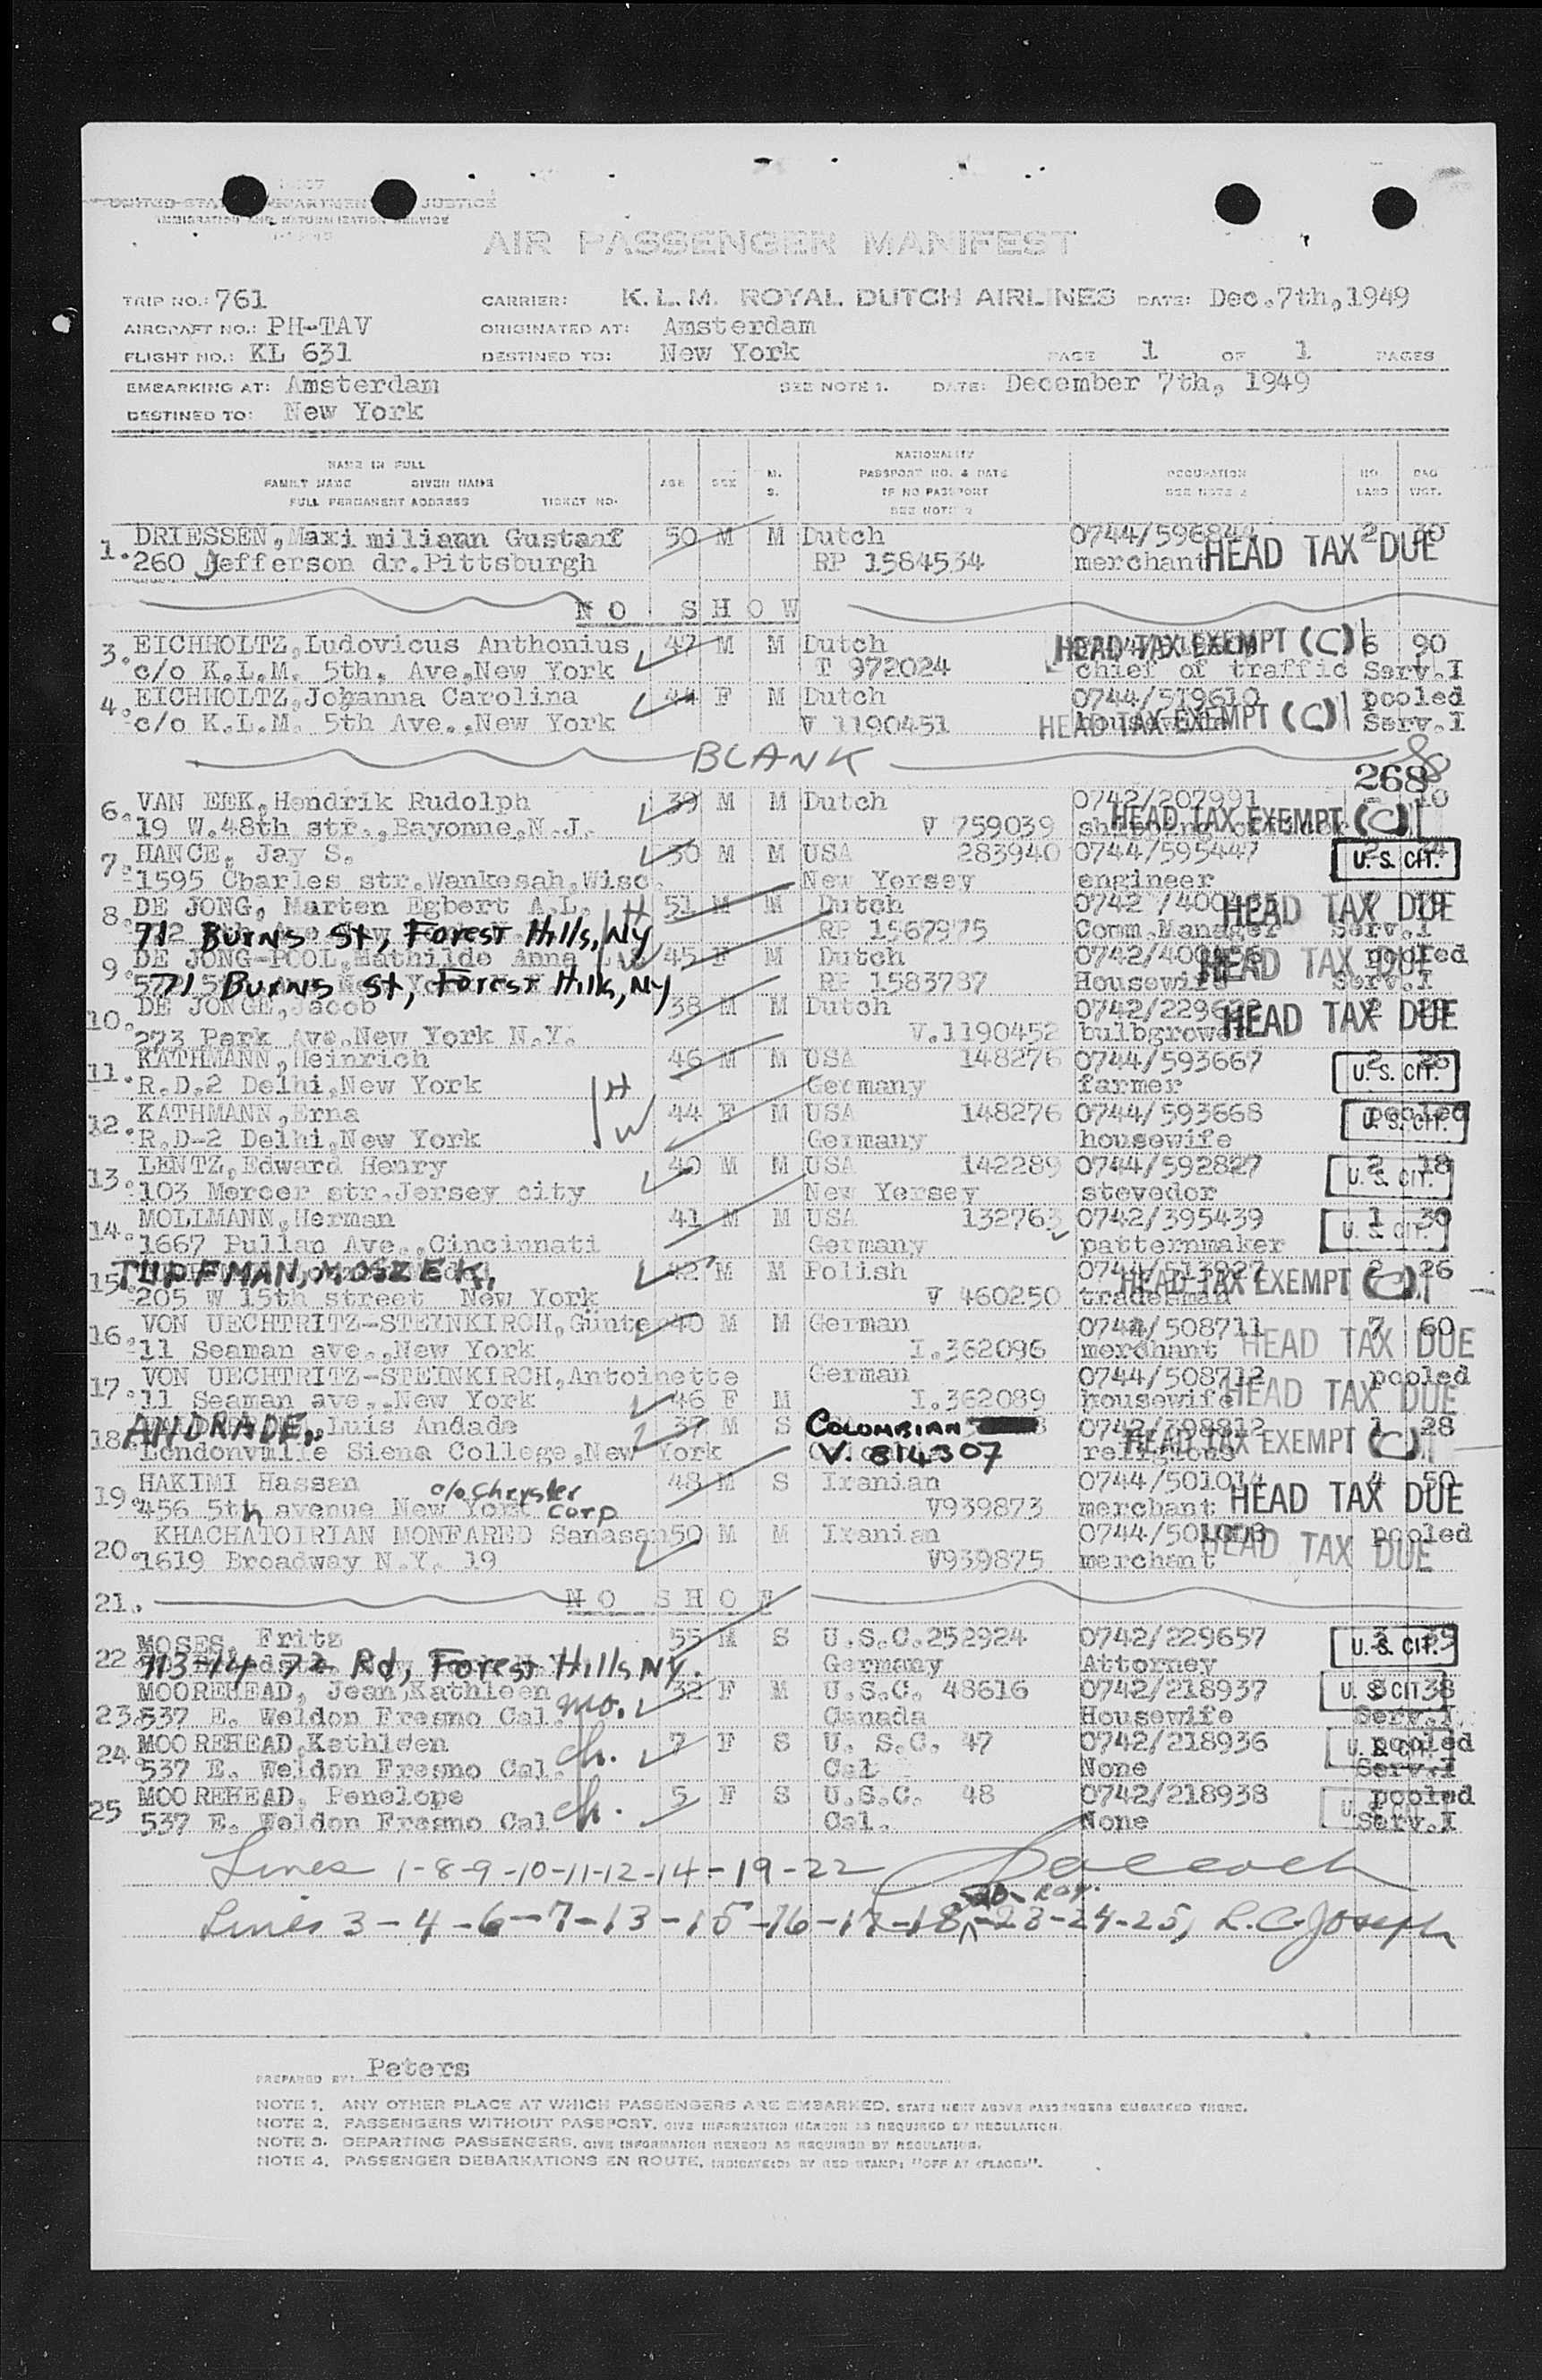 UNITED STATES DEPARTMENT OF JUSTICE
IMMIGRATION AND NATURALIZATION SERVICE
AIR PASSENGER MANIFEST
TRIP NO.: 761 CARRIER: K.L.M. ROYAL DUTCH AIRLINES DATE: Dec.7th,1949
AIRCRAFT NO.: PH-TAV ORIGINATED AT: Amsterdam
FLIGHT NO.: KL 631 DESTINED TO: New York PAGE 1 OF 1 PAGES
EMBARKING AT: Amsterdam SEE NOTE 1. DATE: December 7th, 1949
DESTINED TO: New York
NAME IN FULL AGE SEX M. S. NATIONALITY OCCUPATION NO. BAG
FAMILY NAME GIVEN NAME PASSPORT NO. & DATE SEE NOTE 2 WGT.
FULL PERMANENT ADDRESS TICKET NO. IF NO PASSPORT
SEE NOTE 2
1. DRIESSEN,Maximiliaan Gustaaf 50 M M Dutch 0744/596844 2 30
260 Jefferson dr.Pittsburgh RP 1584534 merchant HEAD TAX DUE
NO SHOW
3. EICHHOLTZ,Ludovicus Anthonius 47 M M Dutch HEAD TAX EXEMPT (C) 6 90
c/o K.L.M. 5th. Ave,New York T 972024 chief of traffic Serv.I
4. EICHHOLTZ,Johanna Carolina 44 F M Dutch 0744/519610 pooled
c/o K.L.M. 5th Ave.,New York V 1190451 housewife HEAD TAX EXEMPT (C) Serv.I
BLANK
268
6. VAN EEK,Hendrik Rudolph 39 M M Dutch 0742/207991 10
19 W.48th str.,Bayonne,N.J. V 759039 HEAD TAX EXEMPT (C)
7. HANCE, Jay S. 30 M M USA 283940 0744/595447 U.S. CIT.
1595 Charles str.Wankesah,Wisc. New Yersey engineer
8. DE JONG, Marten Egbert A.L. H 51 M M Dutch HEAD TAX DUE
712 Burns St, Forest Hills, NY RP 1567975 Comm.Manager Serv.I
9. DE JONG-POOL,Mathilde Anna W 45 F M Dutch pooled
71 Burns St, Forest Hills, NY RP 1583787 Housewife HEAD TAX DUE Serv.I
10. DE JONGE,Jacob 38 M M Dutch
273 Park Ave.New York N.Y. V.1190452 bulbgrower HEAD TAX DUE
11. KATHMANN,Heinrich 46 M M USA 148276 0744/593667 2 U.S. CIT.
R.D.2 Delhi,New York H Germany farmer
12. KATHMANN,Erna W 44 F M USA 148276 0744/593668 pooled U.S. CIT.
R.D-2 Delhi,New York Germany housewife
13. LENTZ,Edward Henry 40 M M USA 142289 0744/592827 2 18
103 Mercer str.Jersey city New Yersey stevedor U.S. CIT.
14. MOLLMANN,Herman 41 M M USA 132763 0742/395439 1 30
1667 Pullan Ave.,Cincinnati Germany patternmaker U.S. CIT.
15. TUPFMAN, MOSZEK, 42 M M Polish 2 26
205 W 15th street New York V 460250 tradesman HEAD TAX EXEMPT (C)
16. VON UECHTRITZ-STEINKIRCH,Günte 40 M M German 0744/508711 7 60
11 Seaman ave.,New York I.362096 merchant HEAD TAX DUE
17. VON UECHTRITZ-STEINKIRCH,Antoinette German 0744/508712 pooled
11 Seaman ave.,New York 46 F M I.362089 housewife HEAD TAX DUE
18. ANDRADE, Luis Andade 37 M S COLOMBIAN 0742/398812 1 28
Londonville Siena College,New York V. 814307 religious HEAD TAX EXEMPT (C)
19. HAKIMI Hassan c/o Chrysler Corp 48 M S Iranian 0744/501014 4 50
456 5th avenue New York V939873 merchant HEAD TAX DUE
20. KHACHATOIRIAN MONFARED Sanasan 50 M M Iranian pooled
1619 Broadway N.Y. 19 V939875 merchant HEAD TAX DUE
21. NO SHOW
22 MOSES, Fritz 55 M S U.S.C.252924 0742/229657 U.S. CIT.
113-14 72 Rd, Forest Hills NY. Germany Attorney
23 MOOREHEAD, Jean,Kathleen mo. 32 F M U.S.C. 48616 0742/218937 U.S CIT 38
537 E. Weldon Fresno Cal. Canada Housewife Serv.I
24 MOOREHEAD,Kathleen ch. 7 F S U. S.C. 47 0742/218936 pooled
537 E. Weldon Fresno Cal. Cal None U.S. CIT. Serv.I
25 MOOREHEAD, Penelope ch. 5 F S U.S.C. 48 0742/218938 pooled
537 E. Weldon Fresno Cal Cal. None Serv.I
Lines 1-8-9-10-11-12-14-19-22
Lines 3-4-6-7-13-15-16-17-18-20-23-24-25, L.C. Joseph
PREPARED BY: Peters
NOTE 1. ANY OTHER PLACE AT WHICH PASSENGERS ARE EMBARKED, STATE NEXT ABOVE PASSENGERS EMBARKED THERE.
NOTE 2. PASSENGERS WITHOUT PASSPORT, GIVE INFORMATION HEREON AS REQUIRED BY REGULATION.
NOTE 3. DEPARTING PASSENGERS, GIVE INFORMATION HEREON AS REQUIRED BY REGULATION.
NOTE 4. PASSENGER DEBARKATIONS EN ROUTE, INDICATE BY RED STAMP: "OFF AT (PLACE)".